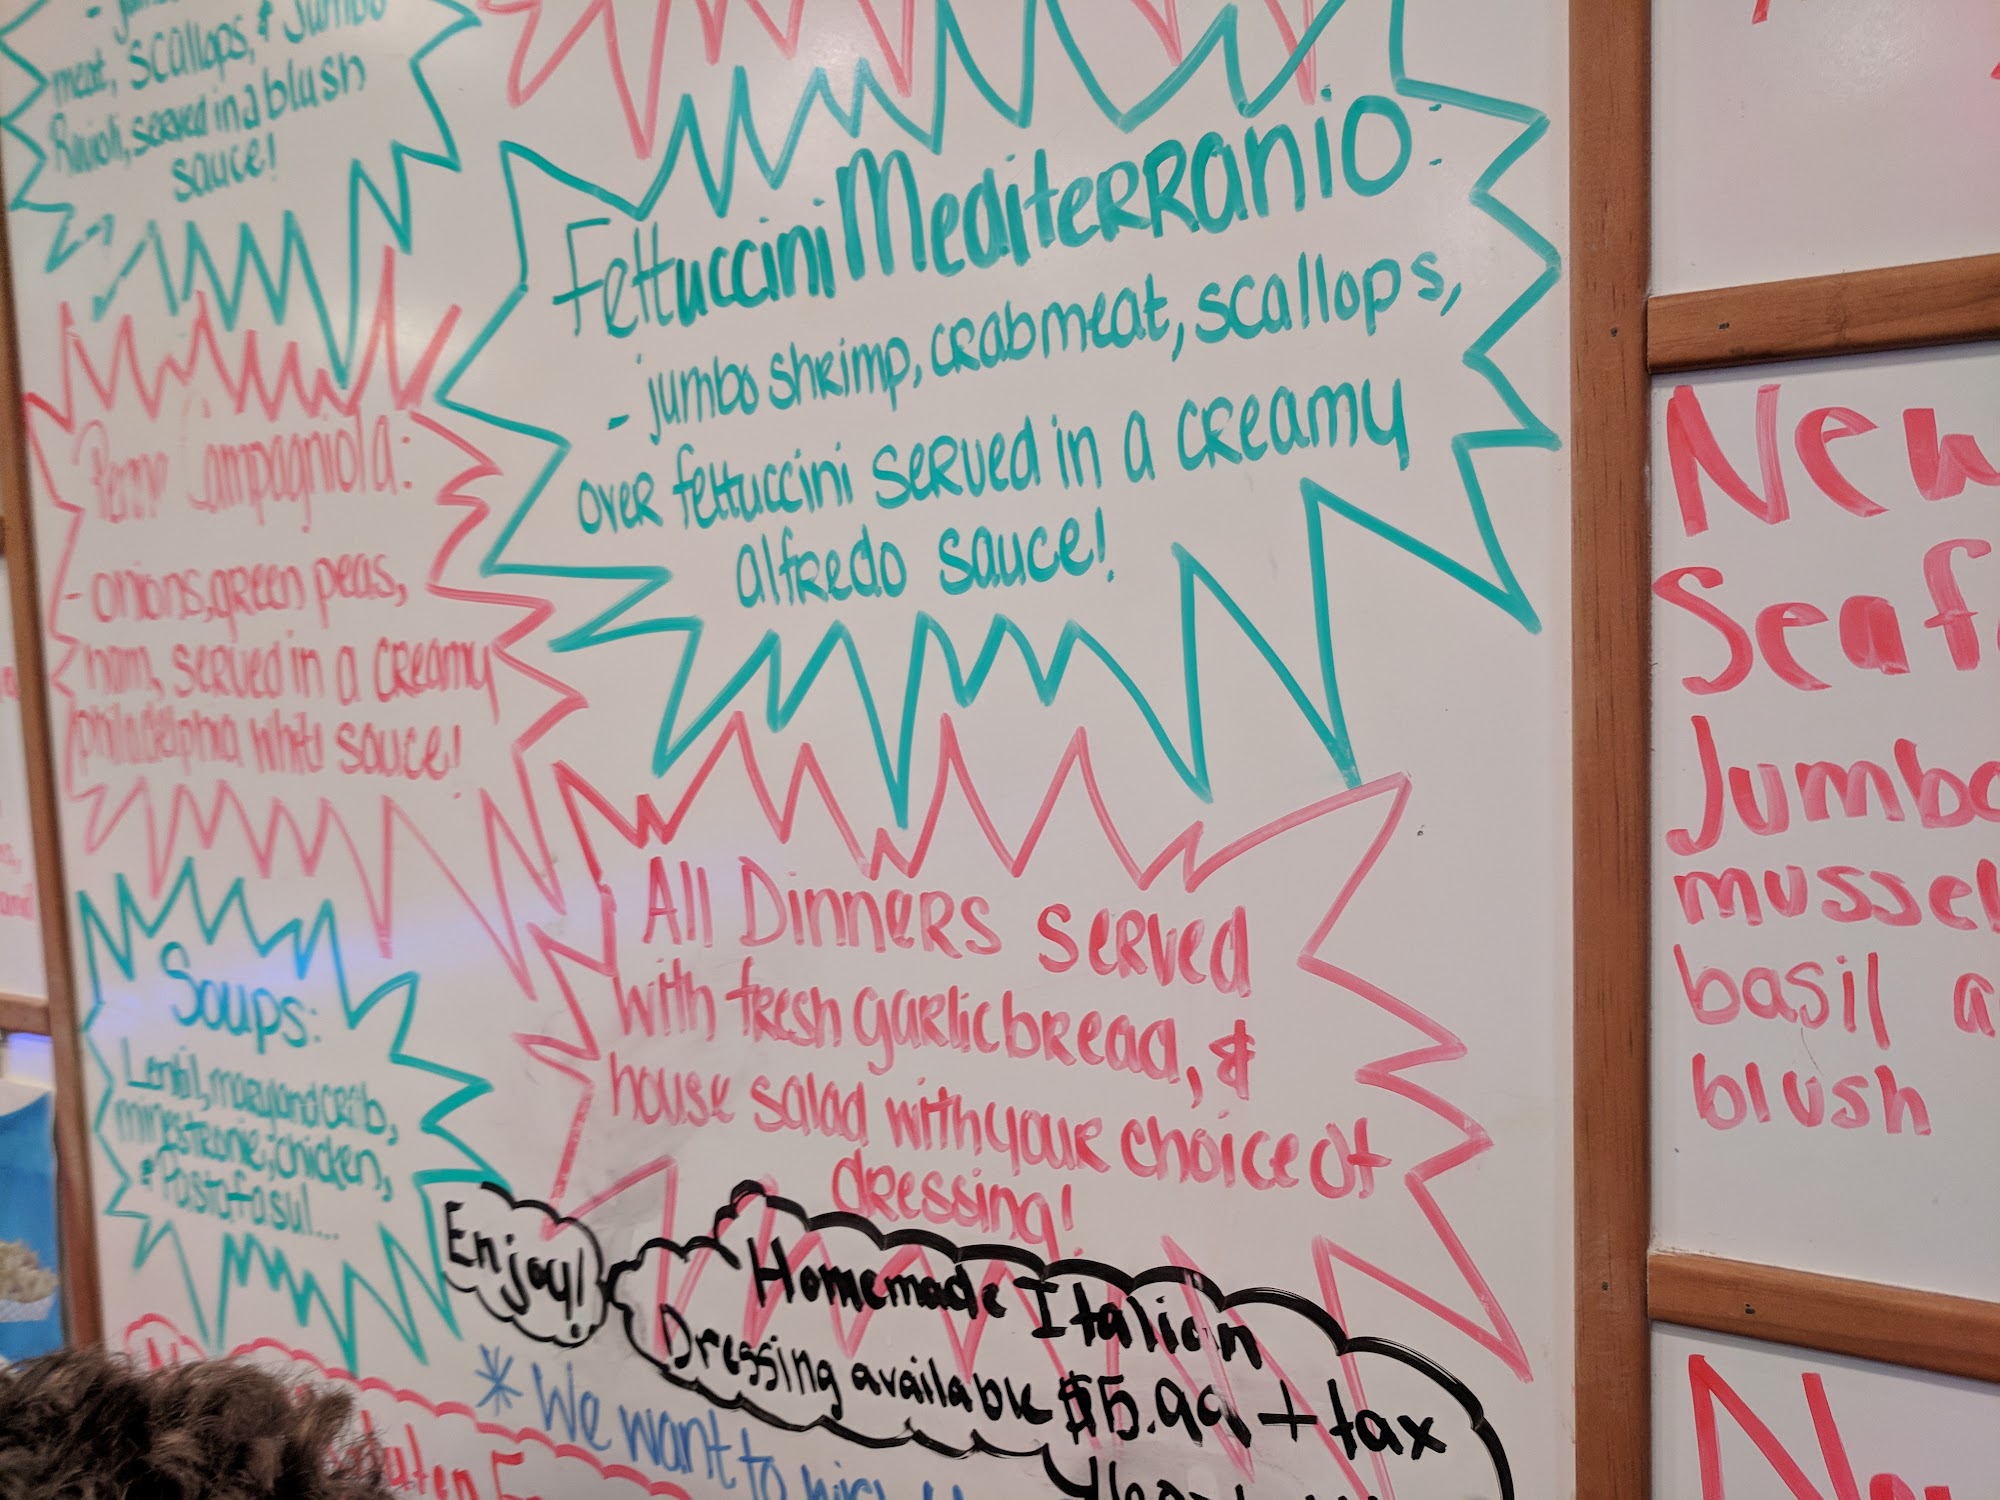 meat, scallops, & Jumbo
Ravioli, served in a blush
sauce!
Fettuccini Mediterranio:
- jumbo shrimp, crabmeat, scallops,
over fettuccini served in a creamy
alfredo sauce!
Penne Campagniola:
- onions, green peas,
ham, served in a creamy
philadelphia white sauce!
All Dinners served
with fresh garlic bread, &
house salad with your choice of
dressing!
Soups:
Lentil, maryland crab,
minestrone, chicken,
& Pastafasul...
Enjoy!
Homemade Italian
Dressing available $5.99 + tax
* We want to
New
Seaf
Jumbo
mussel
basil a
blush